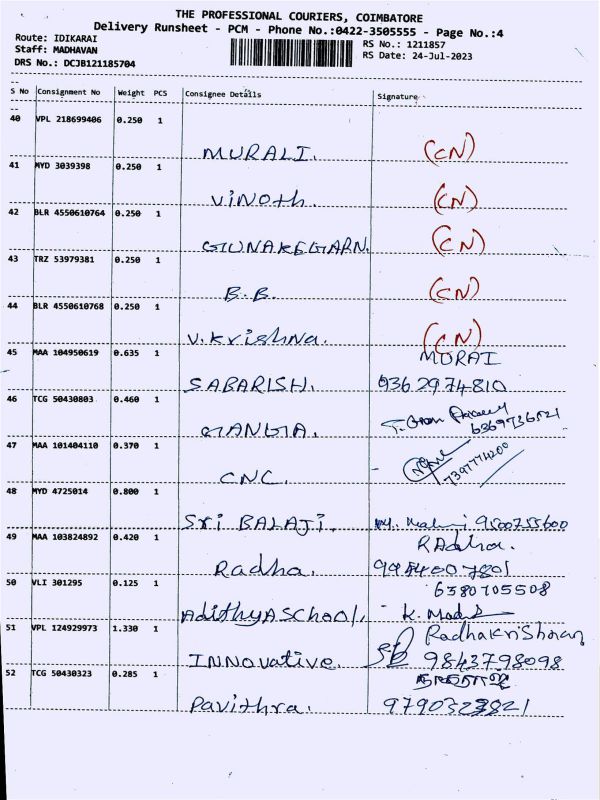 THE PROFESSIONAL COURIERS, COIMBATORE
Delivery Runsheet - PCM - Phone No.:0422-3505555 - Page No.:4
Route: IDIKARAI
Staff: MADHAVAN
DRS No.: DCJB121185704
RS No.: 1211857
RS Date: 24-Jul-2023
S No Consignment No Weight PCS Consignee Details Signature
40 VPL 218699406 0.250 1
MURALI. (CN)
41 MYD 3039398 0.250 1
ViNOth. (CN)
42 BLR 4550610764 0.250 1
(CN)
43 TRZ 53979381 0.250 1
B.B. (CN)
44 BLR 4550610768 0.250 1
V.Krishna. (CN)
45 MAA 104950619 0.635 1
SABARISH. 9362974810
46 TCG 50430803 0.460 1
GANGA. 6369736521
47 MAA 101404110 0.370 1
CNC. 7397774200
48 MYD 4725014 0.800 1
Sri BALAJI. 9500755600
49 MAA 103824892 0.420 1 RAdha.
Radha.
50 VLI 301295 0.125 1 6380705508
AdithyASchool.
51 VPL 124929973 1.330 1 Radhakrishnan
INNovative. 9843798098
52 TCG 50430323 0.285 1
Pavithra.